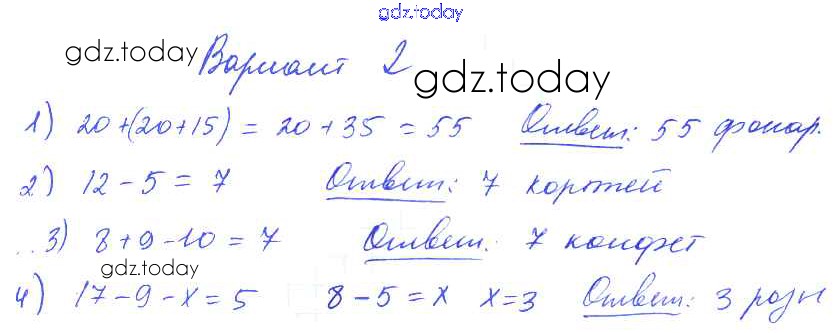 gdz.today
gdz.today Вариант 2
gdz.today
1) 20+(20+15) = 20+35 = 55 Ответ: 55 фонар.
2) 12-5 = 7 Ответ: 7 коржей
3) 8+9-10 = 7 Ответ: 7 конфет
gdz.today
4) 17-9-x=5 8-5=x x=3 Ответ: 3 розы